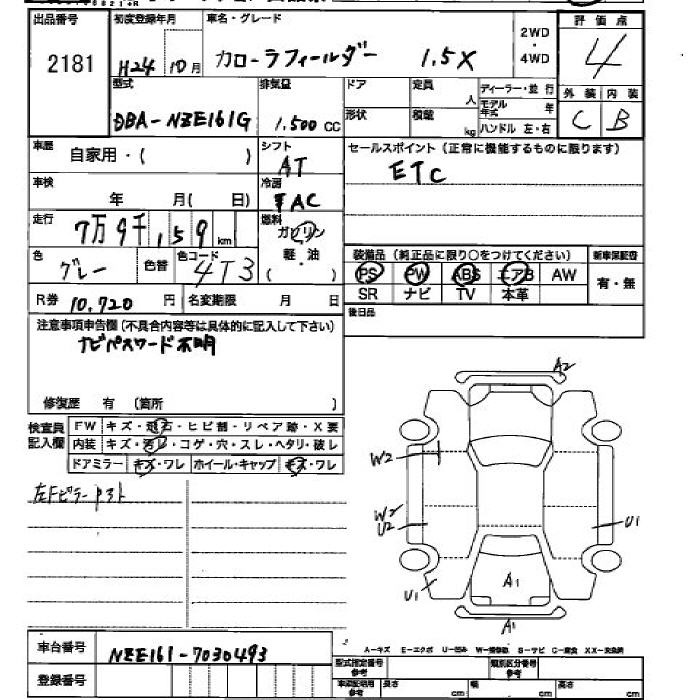 出品番号 初度登録年月 車名・グレード 2WD・4WD 評価点
2181 H24 10月 カローラフィールダー 1.5X 4
型式 排気量 ドア 定員 人 ディーラー・並行 外装 内装
DBA-NZE161G 1,500 cc 形状 積載 kg モデル年式 年 C B
ハンドル 左・右
車歴 自家用・( ) シフト AT セールスポイント (正常に機能するものに限ります)
ETC
車検 年 月( 日) 冷房 AC
走行 7万9千159 km 燃料 ガソリン・軽油 ( )
色 グレー 色替 色コード 4T3
装備品 (純正品に限り○をつけてください) 新車保証書
PS PW ABS エアB AW 有・無
SR ナビ TV 本革
R券 10.720 円 名変期限 月 日 後日品
注意事項申告欄 (不具合内容等は具体的に記入して下さい)
ナビパスワード不明
修復歴 有 (箇所 )
検査員記入欄 FW キズ・飛石・ヒビ割・リペア跡・X要
内装 キズ・汚レ・コゲ・穴・スレ・ヘタリ・破レ
ドアミラー キズ・ワレ ホイール・キャップ キズ・ワレ
A2
W2
W2
U2
U1
U1
A1
A1
A-キズ E-エクボ U-凹み S-サビ C-腐食
車台番号 NZE161-7030493
型式指定番号 参考 類別区分番号 参考
登録番号 参考 長さ cm 幅 cm 高さ cm